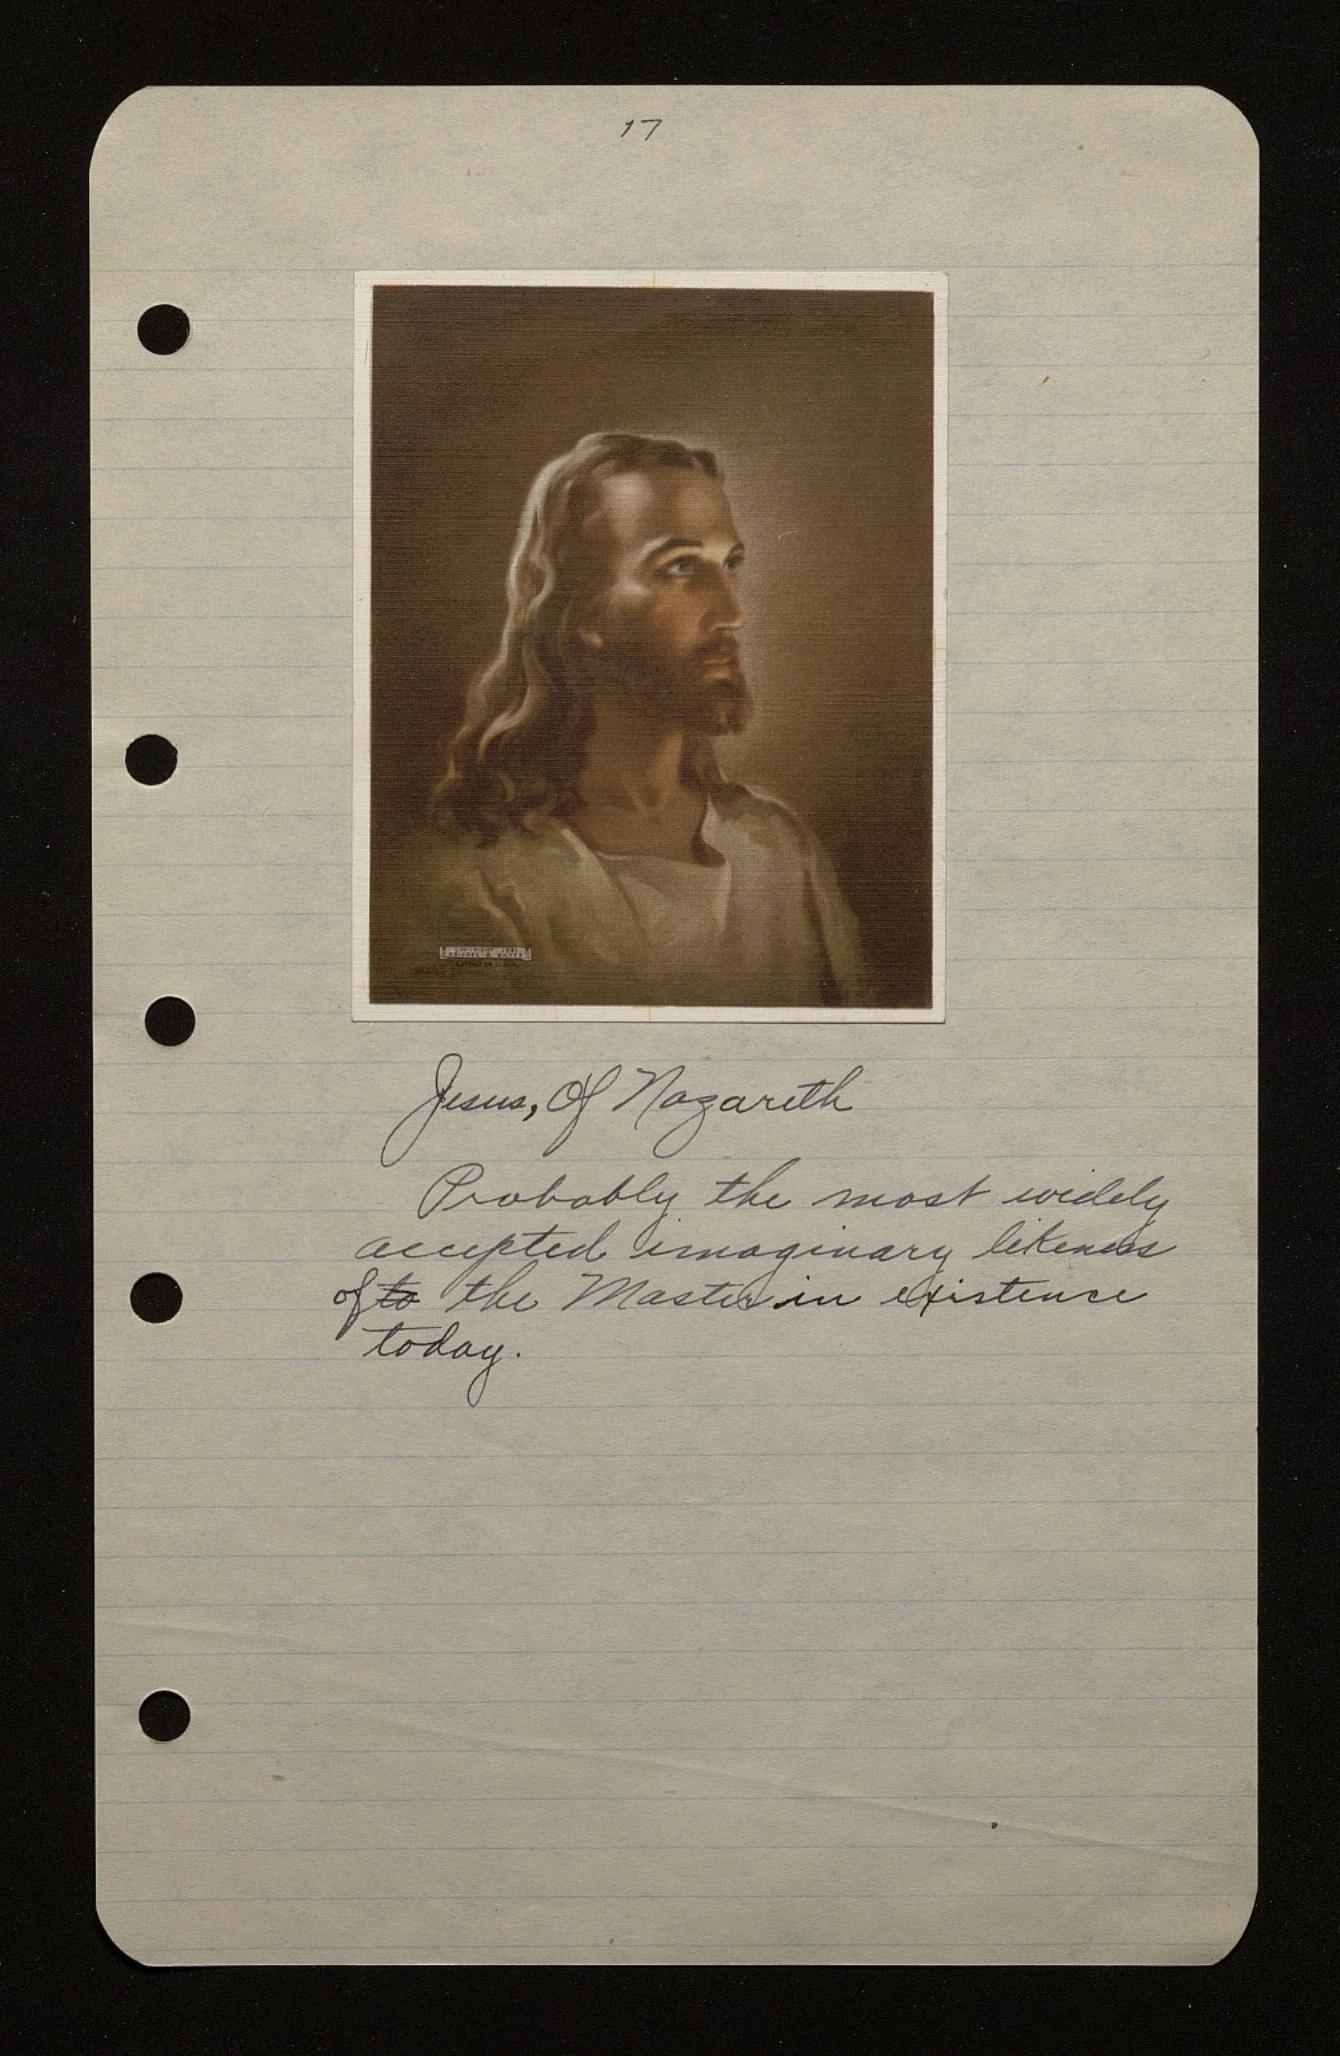 17
COPYRIGHT 1941
Jesus, Of Nazareth
Probably the most widely
accepted imaginary likeness
of to the Master in existence
today.